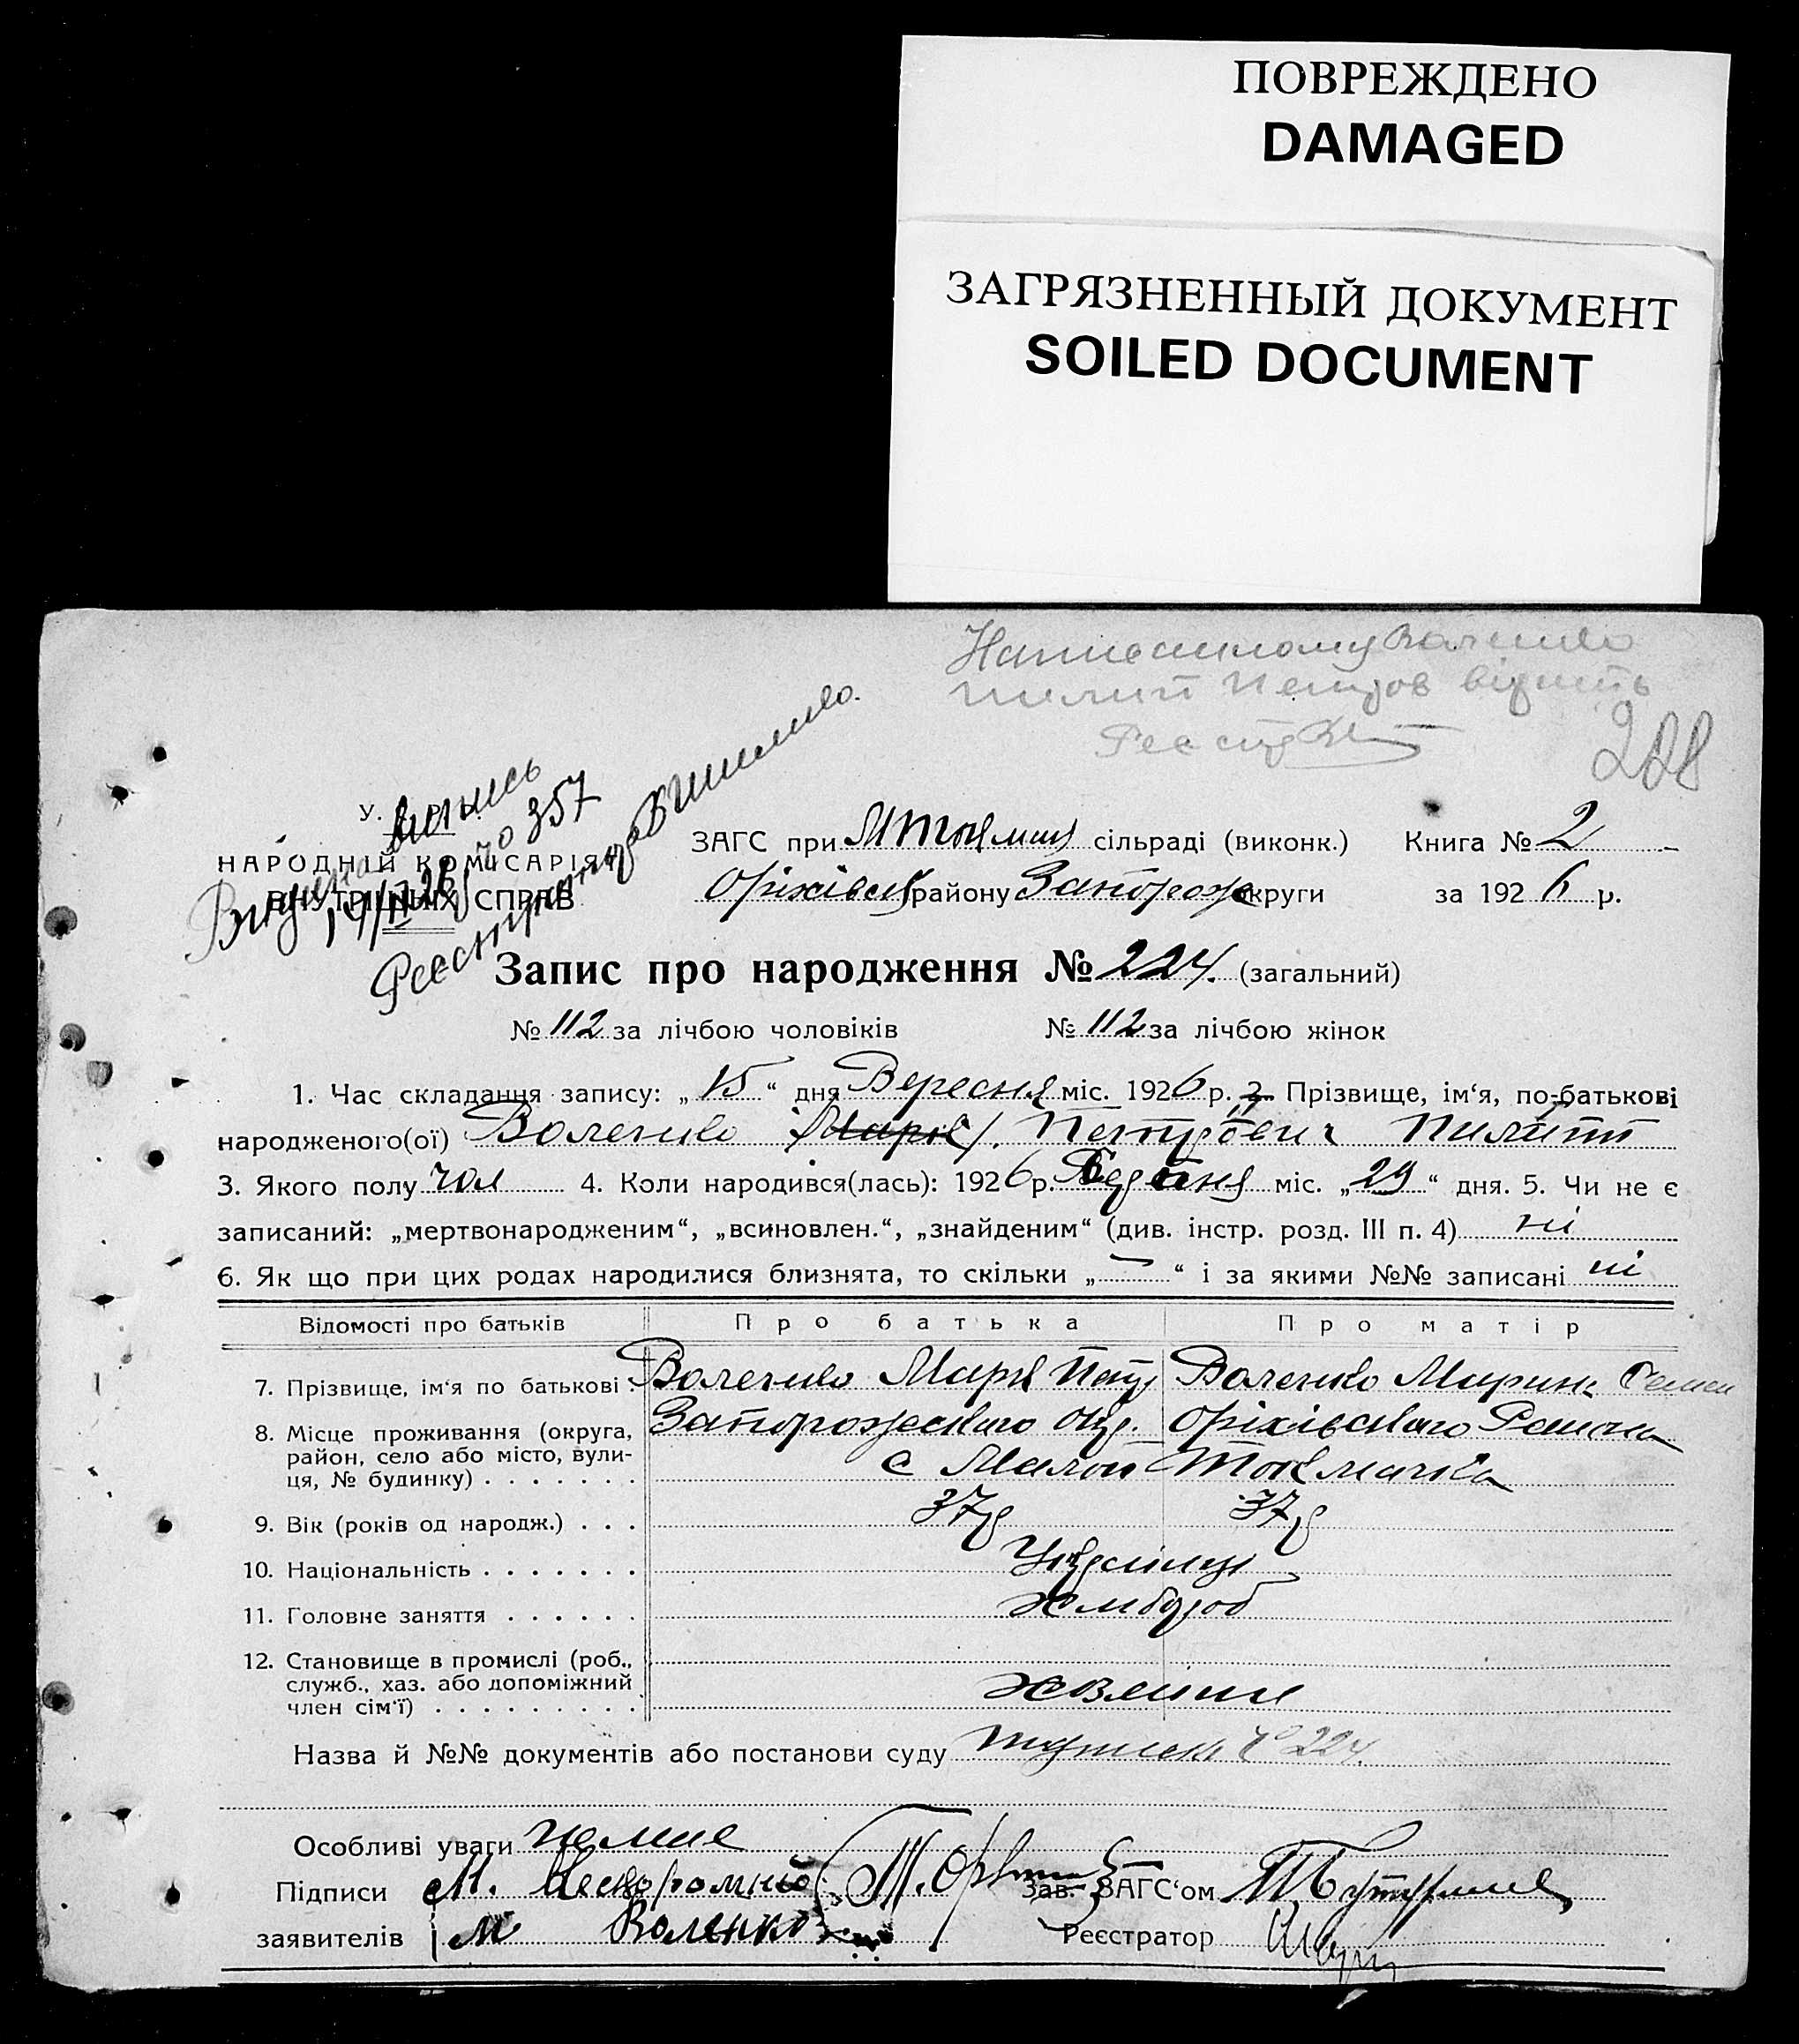 ПОВРЕЖДЕНО
DAMAGED
ЗАГРЯЗНЕННЫЙ ДОКУМЕНТ
SOILED DOCUMENT
208
У.
НАРОДНІЙ КОМІСАРІЯТ
ВНУТРІШНІХ СПРАВ
357
ЗАГС при МТокмац сільраді (виконк.) Книга № 2
Оріхівськ району Запорож округи за 1926 р.
Запис про народження № 224. (загальний)
№ 112 за лічбою чоловіків № 112 за лічбою жінок
1. Час складання запису: „15“ дня Вересня міс. 1926 р. 2. Прізвище, ім‘я, по-батькові
народженого(ої) Воленко Петрович Пилип
3. Якого полу чол 4. Коли народився(лась): 1926 р. міс. „29“ дня. 5. Чи не є
записаний: „мертвонародженим“, „всиновлен.“, „знайденим“ (див. інстр. розд. III п. 4) ні
6. Як що при цих родах народилися близнята, то скільки „—“ і за якими №№ записані ні
Відомості про батьків Про батька Про матір
7. Прізвище, ім‘я по батькові: Воленко Марк Петр Воленко Марина Семен
8. Місце проживання (округа, Запорожського окр. Оріхівського Района
район, село або місто, вули- с Малой Токмачка
ця, № будинку) . . . . . . .
9. Вік (років од народж.) . . . 37р 37р
10. Національність . . . . . . . Українці
11. Головне заняття . . . . . . хлібороб
12. Становище в промислі (роб.,
служб., хаз. або допоміжний хозяіни
член сім‘ї) . . . . . . . . .
Назва й №№ документів або постанови суду № 224.
Особливі уваги немае
Підписи М. Зав. ЗАГС‘ом
заявителів М Воленко Реєстратор